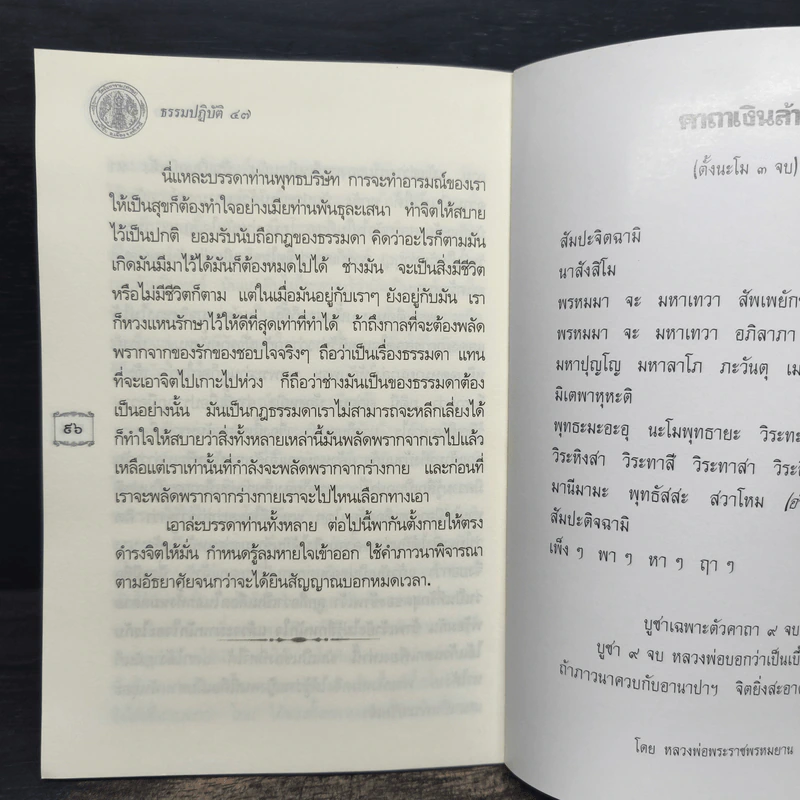 ธรรมปฏิบัติ ๔๗
นี่แหละบรรดาท่านพุทธบริษัท การจะทำอารมณ์ของเรา
ให้เป็นสุขก็ต้องทำใจอย่างเมียท่านพันธุละเสนา ทำจิตให้สบาย
ไว้เป็นปกติ ยอมรับนับถือกฎของธรรมดา คิดว่าอะไรก็ตามมัน
เกิดมันมีมาไว้ได้มันก็ต้องหมดไปได้ ช่างมัน จะเป็นสิ่งมีชีวิต
หรือไม่มีชีวิตก็ตาม แต่ในเมื่อมันอยู่กับเราๆ ยังอยู่กับมัน เรา
ก็หวงแหนรักษาไว้ให้ดีที่สุดเท่าที่ทำได้ ถ้าถึงกาลที่จะต้องพลัด
พรากจากของรักของชอบใจจริงๆ ถือว่าเป็นเรื่องธรรมดา แทน
ที่จะเอาจิตไปเกาะไปห่วง ก็ถือว่าช่างมันเป็นของธรรมดาต้อง
เป็นอย่างนั้น มันเป็นกฎธรรมดาเราไม่สามารถจะหลีกเลี่ยงได้
ก็ทำใจให้สบายว่าสิ่งทั้งหลายเหล่านี้มันพลัดพรากจากเราไปแล้ว
เหลือแต่เราเท่านั้นที่กำลังจะพลัดพรากจากร่างกาย และก่อนที่
เราจะพลัดพรากจากร่างกายเราจะไปไหนเลือกทางเอา
เอาล่ะบรรดาท่านทั้งหลาย ต่อไปนี้พากันตั้งกายให้ตรง
ดำรงจิตให้มั่น กำหนดรู้ลมหายใจเข้าออก ใช้คำภาวนาพิจารณา
ตามอัธยาศัยจนกว่าจะได้ยินสัญญาณบอกหมดเวลา.
๕๖
คาถาเงินล้า
(ตั้งนะโม ๓ จบ)
สัมปะจิตฉามิ
นาสังสิโม
พรหมมา จะ มหาเทวา สัพเพยัก
พรหมมา จะ มหาเทวา อภิลาภา
มหาปุญโญ มหาลาโภ ภะวันตุ เม
มิเตพาหุหะติ
พุทธะมะอะอุ นะโมพุทธายะ วิระทะ
วิระหิงสา วิระทาสี วิระทาสา วิระ
มานีมามะ พุทธัสสะ สวาโหม
สัมปะติจฉามิ
เพ็ง ๆ พา ๆ หา ๆ ฤา ๆ
บูชาเฉพาะตัวคาถา ๙ จบ
บูชา ๙ จบ หลวงพ่อบอกว่าเป็นเบี้
ถ้าภาวนาควบกับอานาปาฯ จิตยิ่งสะอา
โดย หลวงพ่อพระราชพรหมยาน